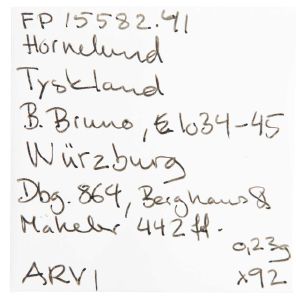 FP 15582.41
Hornelund
Tyskland
B. Bruno, 1034-45
Würzburg
Dbg. 864, Berghaus &
Mäkeler 442 ff.
0,23g
ARV1 x92